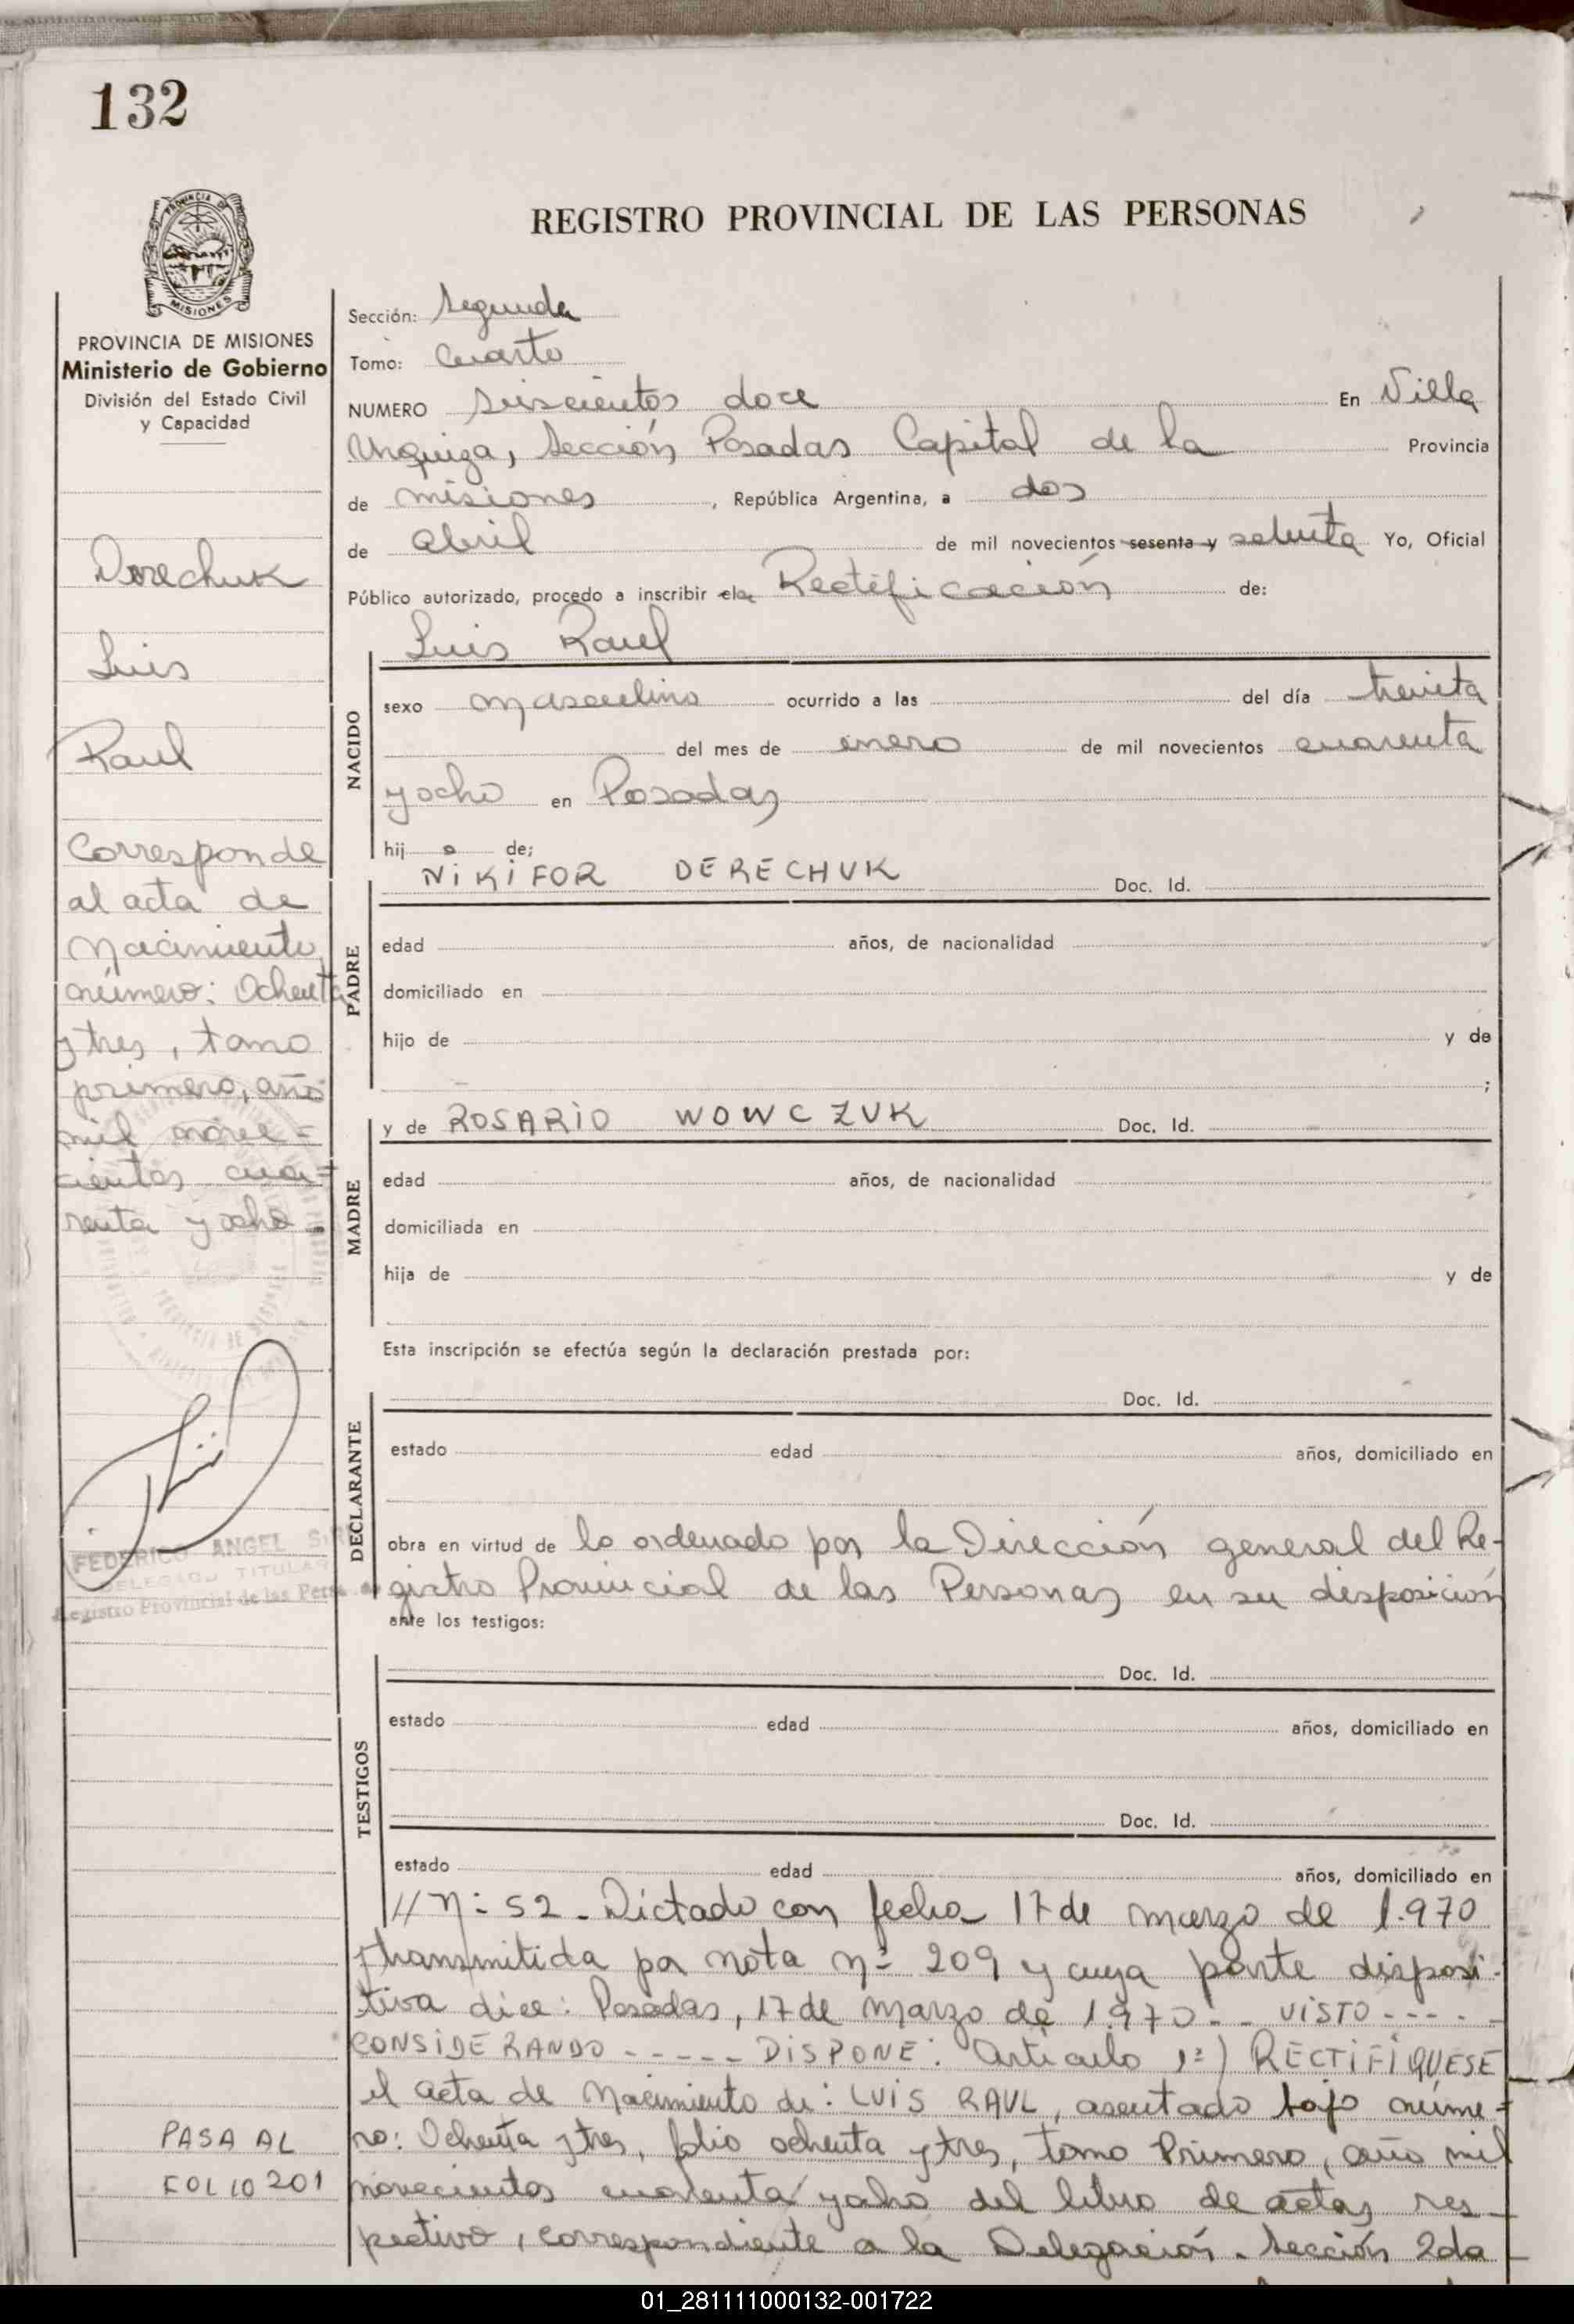 132
PROVINCIA DE MISIONES
REGISTRO PROVINCIAL DE LAS PERSONAS
PROVINCIA DE MISIONES
Ministerio de Gobierno
División del Estado Civil
y Capacidad
Derechuk
Luis
Raul
Corresponde
al acta de
Nacimiento
número: Ochenta
y tres, tomo
primero, año
mil nove=
cientos cua=
renta y ocho
FEDERICO ANGEL
DELEGADO TITULAR
Registro Provincial de las Personas
PASA AL
FOLIO 201
Sección: Segunda
Tomo: Cuarto
NUMERO Seiscientos doce En Villa
Urquiza, Sección Posadas Capital de la Provincia
de Misiones, República Argentina, a dos
de Abril de mil novecientos sesenta y setenta Yo, Oficial
Público autorizado, procedo a inscribir el la Rectificación de:
Luis Raul
NACIDO
sexo masculino ocurrido a las del día treinta
del mes de enero de mil novecientos cuarenta
y ocho en Posadas
hij o de;
NIKIFOR DERECHUK Doc. Id.
PADRE
edad años, de nacionalidad
domiciliado en
hijo de y de
;
y de ROSARIO WOWCZUK Doc. Id.
MADRE
edad años, de nacionalidad
domiciliada en
hija de y de
Esta inscripción se efectúa según la declaración prestada por:
Doc. Id.
DECLARANTE
estado edad años, domiciliado en
obra en virtud de lo ordenado por la Dirección general del Re-
gistro Provincial de las Personas en su disposición
ante los testigos:
Doc. Id.
TESTIGOS
estado edad años, domiciliado en
Doc. Id.
estado edad años, domiciliado en
// Nº 52 - Dictado con fecha 17 de marzo de 1.970
transmitida por nota Nº 209 y cuya parte disposi-
tiva dice: Posadas, 17 de Marzo de 1.970 -- VISTO -----
CONSIDERANDO ----- DISPONE: Artículo 1º) RECTIFIQUESE
el acta de Nacimiento de: LUIS RAUL, asentado bajo núme=
ro: Ochenta y tres, folio ochenta y tres, tomo Primero, año mil
novecientos cuarenta y ocho del libro de actas res-
pectivo, correspondiente a la Delegación - Sección 2da
01_281111000132-001722